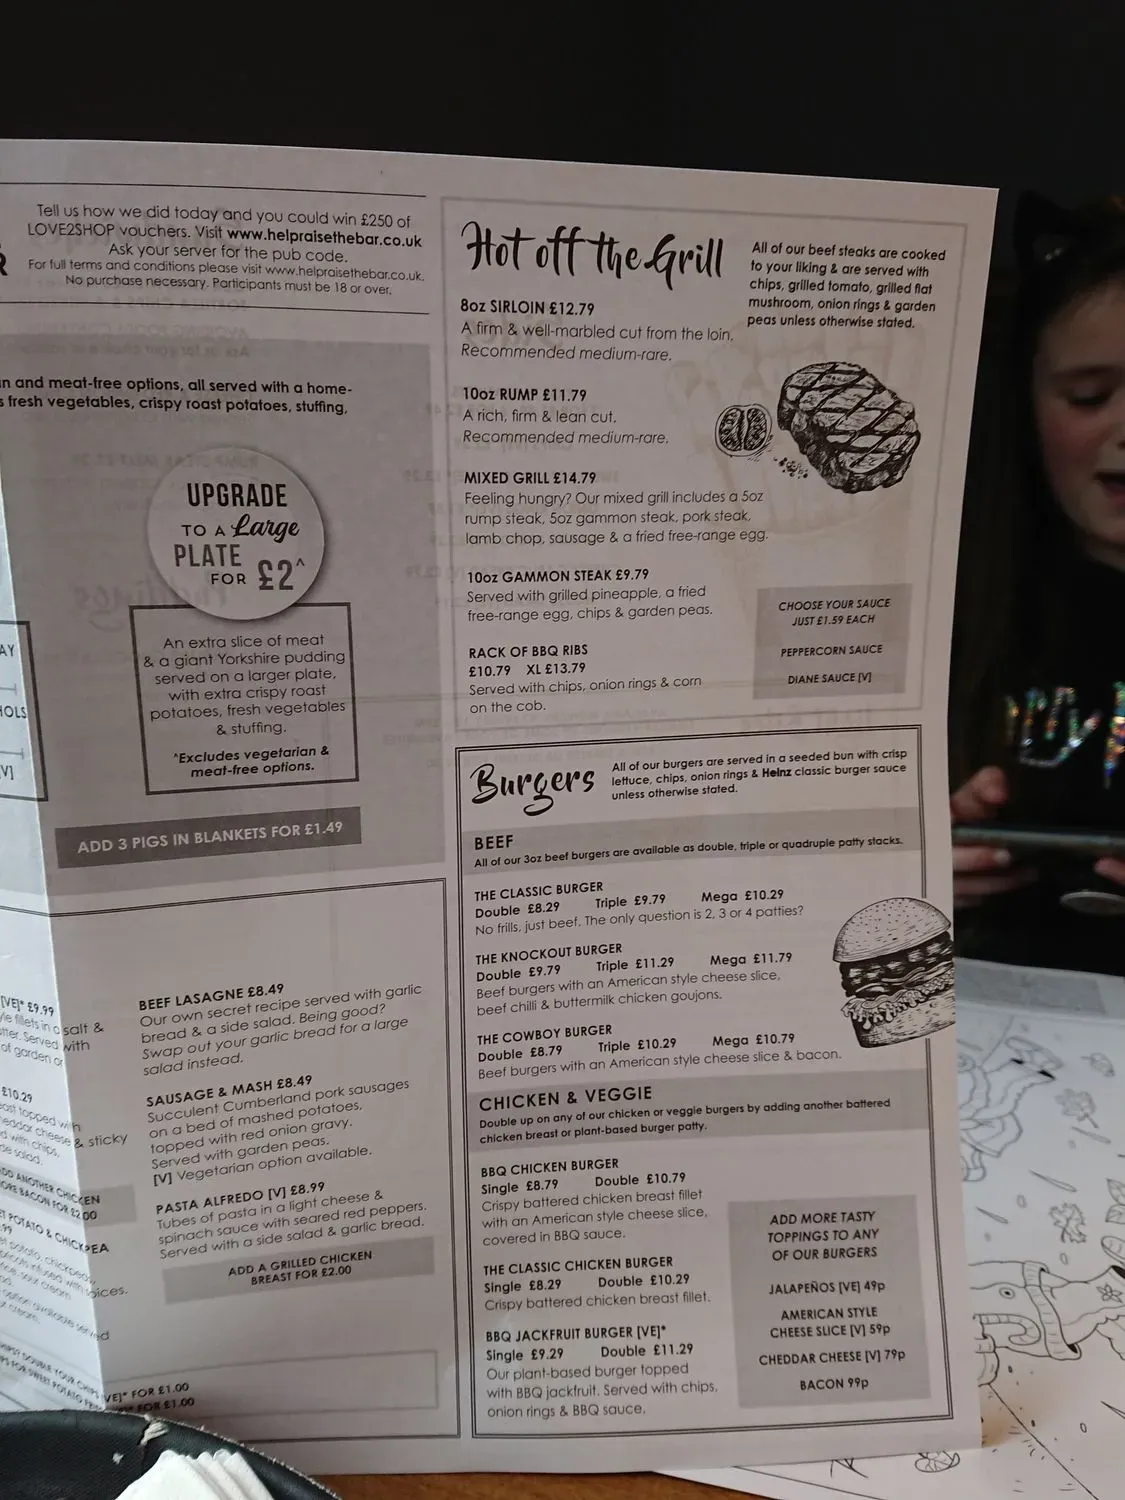 Tell us how we did today and you could win £250 of
LOVE2SHOP vouchers. Visit www.helpraisethebar.co.uk
Ask your server for the pub code.
For full terms and conditions please visit www.helpraisethebar.co.uk.
No purchase necessary. Participants must be 18 or over.
and meat-free options, all served with a home-
fresh vegetables, crispy roast potatoes, stuffing,
UPGRADE
TO A Large
PLATE
FOR £2^
An extra slice of meat
& a giant Yorkshire pudding
served on a larger plate,
with extra crispy roast
potatoes, fresh vegetables
& stuffing.
^Excludes vegetarian &
meat-free options.
ADD 3 PIGS IN BLANKETS FOR £1.49
[VE]* £9.99
fillets in a salt &
Served with
of garden or
£10.29
topped with
cheese & sticky
with chips,
salad.
ADD ANOTHER CHICKEN
BACON FOR £2.00
POTATO & CHICKPEA
potato, chickpeas,
infused with spices.
sour cream.
option available served
cream.
DOUBLE YOUR CHIPS [VE]* FOR £1.00
FOR SWEET POTATO FOR £1.00
BEEF LASAGNE £8.49
Our own secret recipe served with garlic
bread & a side salad. Being good?
Swap out your garlic bread for a large
salad instead.
SAUSAGE & MASH £8.49
Succulent Cumberland pork sausages
on a bed of mashed potatoes,
topped with red onion gravy.
Served with garden peas.
[V] Vegetarian option available.
PASTA ALFREDO [V] £8.99
Tubes of pasta in a light cheese &
spinach sauce with seared red peppers.
Served with a side salad & garlic bread.
ADD A GRILLED CHICKEN
BREAST FOR £2.00
Hot off the Grill
All of our beef steaks are cooked
to your liking & are served with
chips, grilled tomato, grilled flat
mushroom, onion rings & garden
peas unless otherwise stated.
8oz SIRLOIN £12.79
A firm & well-marbled cut from the loin.
Recommended medium-rare.
10oz RUMP £11.79
A rich, firm & lean cut.
Recommended medium-rare.
MIXED GRILL £14.79
Feeling hungry? Our mixed grill includes a 5oz
rump steak, 5oz gammon steak, pork steak,
lamb chop, sausage & a fried free-range egg.
10oz GAMMON STEAK £9.79
Served with grilled pineapple, a fried
free-range egg, chips & garden peas.
RACK OF BBQ RIBS
£10.79 XL £13.79
Served with chips, onion rings & corn
on the cob.
CHOOSE YOUR SAUCE
JUST £1.59 EACH
PEPPERCORN SAUCE
DIANE SAUCE [V]
Burgers
All of our burgers are served in a seeded bun with crisp
lettuce, chips, onion rings & Heinz classic burger sauce
unless otherwise stated.
BEEF
All of our 3oz beef burgers are available as double, triple or quadruple patty stacks.
THE CLASSIC BURGER
Double £8.29 Triple £9.79 Mega £10.29
No frills, just beef. The only question is 2, 3 or 4 patties?
THE KNOCKOUT BURGER
Double £9.79 Triple £11.29 Mega £11.79
Beef burgers with an American style cheese slice,
beef chilli & buttermilk chicken goujons.
THE COWBOY BURGER
Double £8.79 Triple £10.29 Mega £10.79
Beef burgers with an American style cheese slice & bacon.
CHICKEN & VEGGIE
Double up on any of our chicken or veggie burgers by adding another battered
chicken breast or plant-based burger patty.
BBQ CHICKEN BURGER
Single £8.79 Double £10.79
Crispy battered chicken breast fillet
with an American style cheese slice,
covered in BBQ sauce.
THE CLASSIC CHICKEN BURGER
Single £8.29 Double £10.29
Crispy battered chicken breast fillet.
BBQ JACKFRUIT BURGER [VE]*
Single £9.29 Double £11.29
Our plant-based burger topped
with BBQ jackfruit. Served with chips,
onion rings & BBQ sauce.
ADD MORE TASTY
TOPPINGS TO ANY
OF OUR BURGERS
JALAPEÑOS [VE] 49p
AMERICAN STYLE
CHEESE SLICE [V] 59p
CHEDDAR CHEESE [V] 79p
BACON 99p